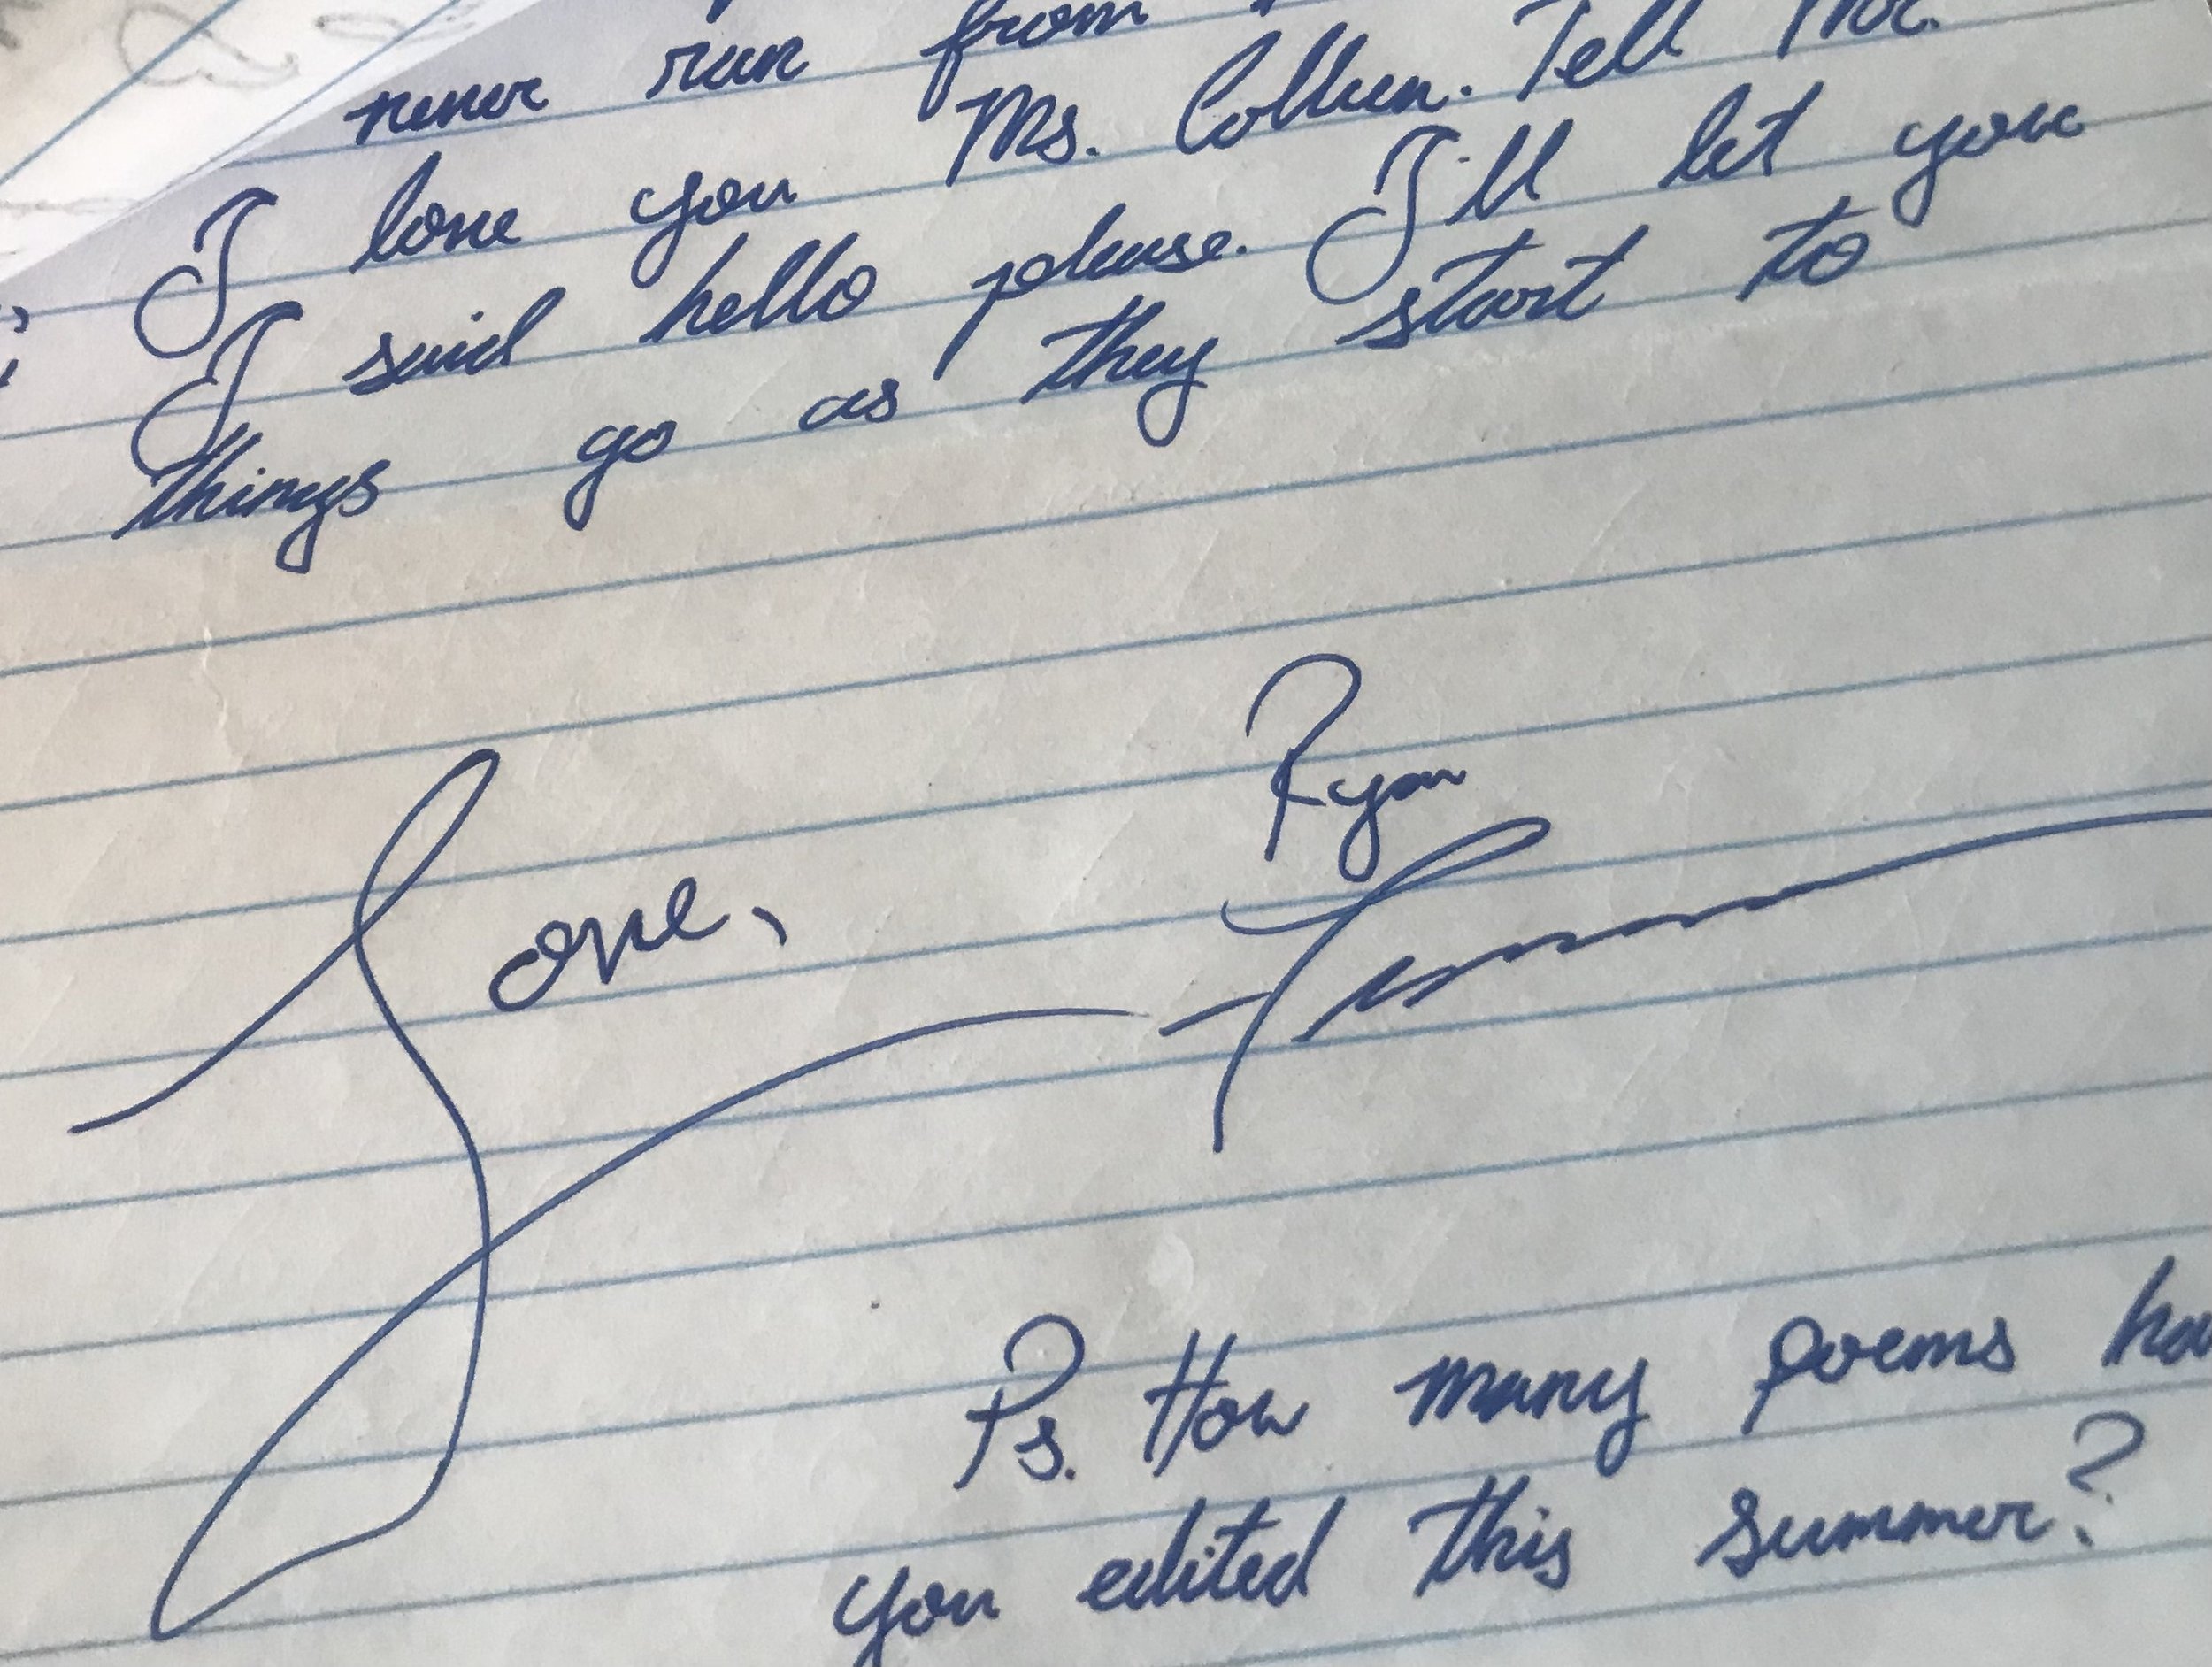 never run from
I love you Ms. Tell
I said hello please. I'll let you
things go as they start to
Love,
Ryan
Ps. How many poems
you edited this summer?